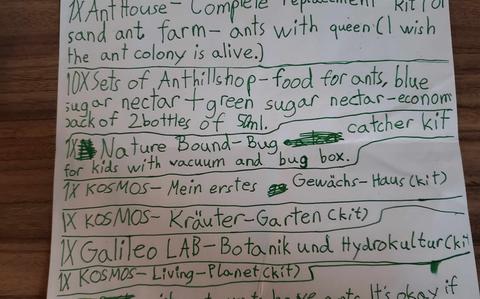 1X Ant House - Complete replacement Kit for
sand ant farm - ants with queen (I wish
the ant colony is alive.)
10X Sets of Anthillshop - food for ants, blue
sugar nectar + green sugar nectar - econom
pack of 2 bottles of 50ml.
1X Nature Bound - Bug catcher kit
for kids with vacuum and bug box.
1X KOSMOS - Mein erstes Gewächs - Haus (kit)
1X KOSMOS - Kräuter - Garten (kit)
1X Galileo LAB - Botanik und Hydrokultur (kit
1X KOSMOS - Living - Planet (kit)
to have ants. It's okay if